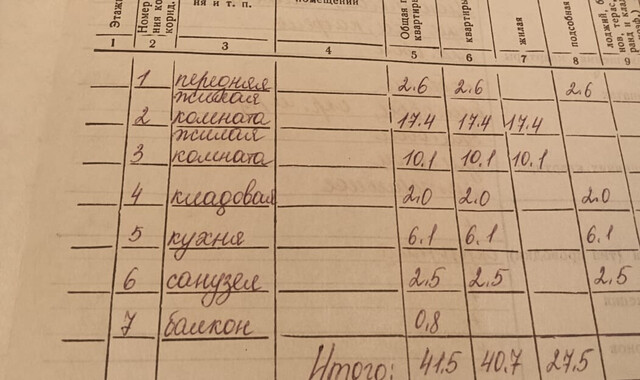 Этажи
Номер
ния ко
корид.
ния и т. п.
помещений
Общая п
квартиры
квартиры
жилая
подсобная
лоджий, б
нов, терас,
ранд и кла
1 2 3 4 5 6 7 8 9
1 передняя 2.6 2.6 2.6
жилая
2 комната 17.4 17.4 17.4
жилая
3 комната 10.1 10.1 10.1
4 кладовая 2.0 2.0 2.0
5 кухня 6.1 6.1 6.1
6 санузел 2.5 2.5 2.5
7 балкон 0,8
Итого: 41.5 40.7 27.5